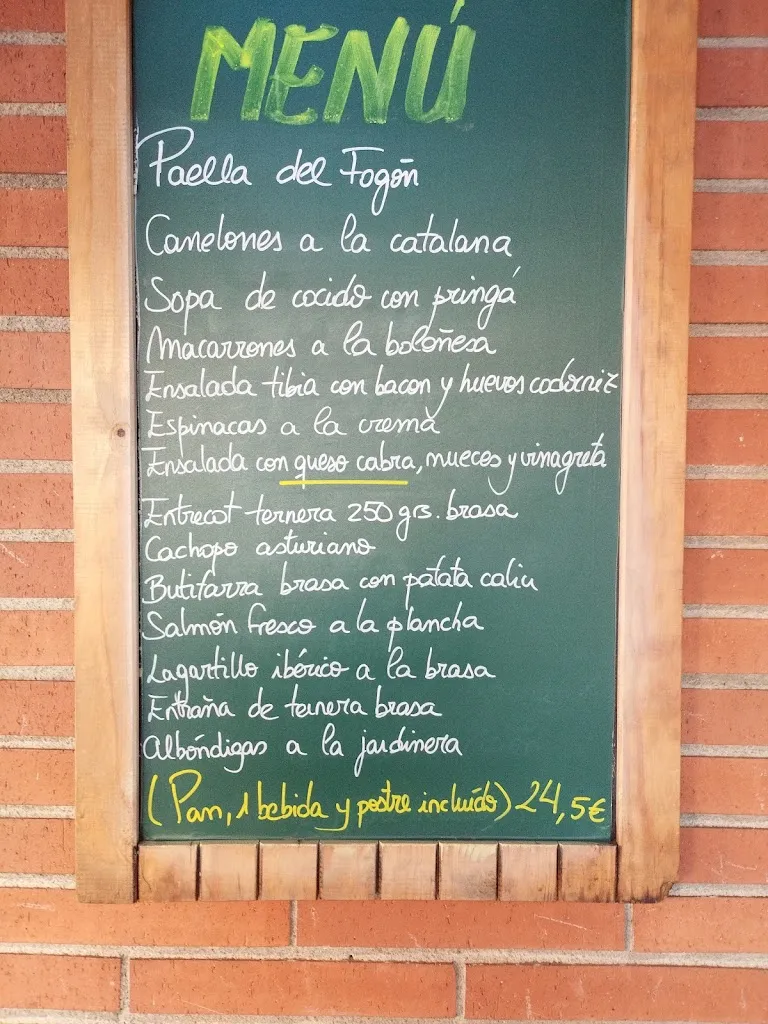 MENÚ
Paella del Fogón
Canelones a la catalana
Sopa de cocido con pringá
Macarrones a la boloñesa
Ensalada tibia con bacon y huevos codorniz
Espinacas a la crema
Ensalada con queso cabra, nueces y vinagreta
Entrecot ternera 250 grs. brasa
Cachopo asturiano
Butifarra brasa con patata caliu
Salmón fresco a la plancha
Lagartillo ibérico a la brasa
Entraña de ternera brasa
Albóndigas a la jardinera
(Pan, 1 bebida y postre incluído) 24,5€